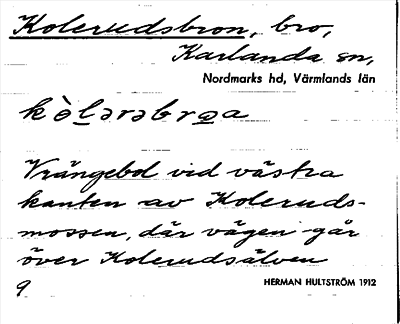 Kolerudsbron, bro,
Karlanda sn,
Nordmarks hd, Värmlands län
kὸl̠ərəbro̠a
Vrängebol vid västra
kanten av Koleruds-
mossen, där vägen går
över Kolerudsälven
9
HERMAN HULTSTRÖM 1912